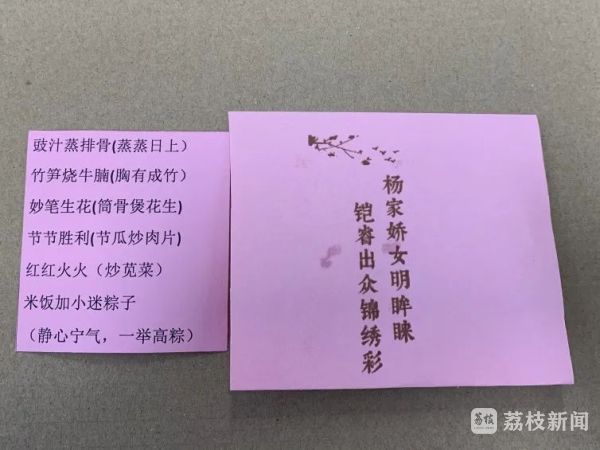 豉汁蒸排骨(蒸蒸日上）
竹笋烧牛腩(胸有成竹）
妙笔生花(筒骨煲花生)
节节胜利(节瓜炒肉片)
红红火火（炒苋菜）
米饭加小迷粽子
（静心宁气，一举高粽）
杨家娇女明眸睐
铠睿出众锦绣彩
荔枝
荔枝新闻